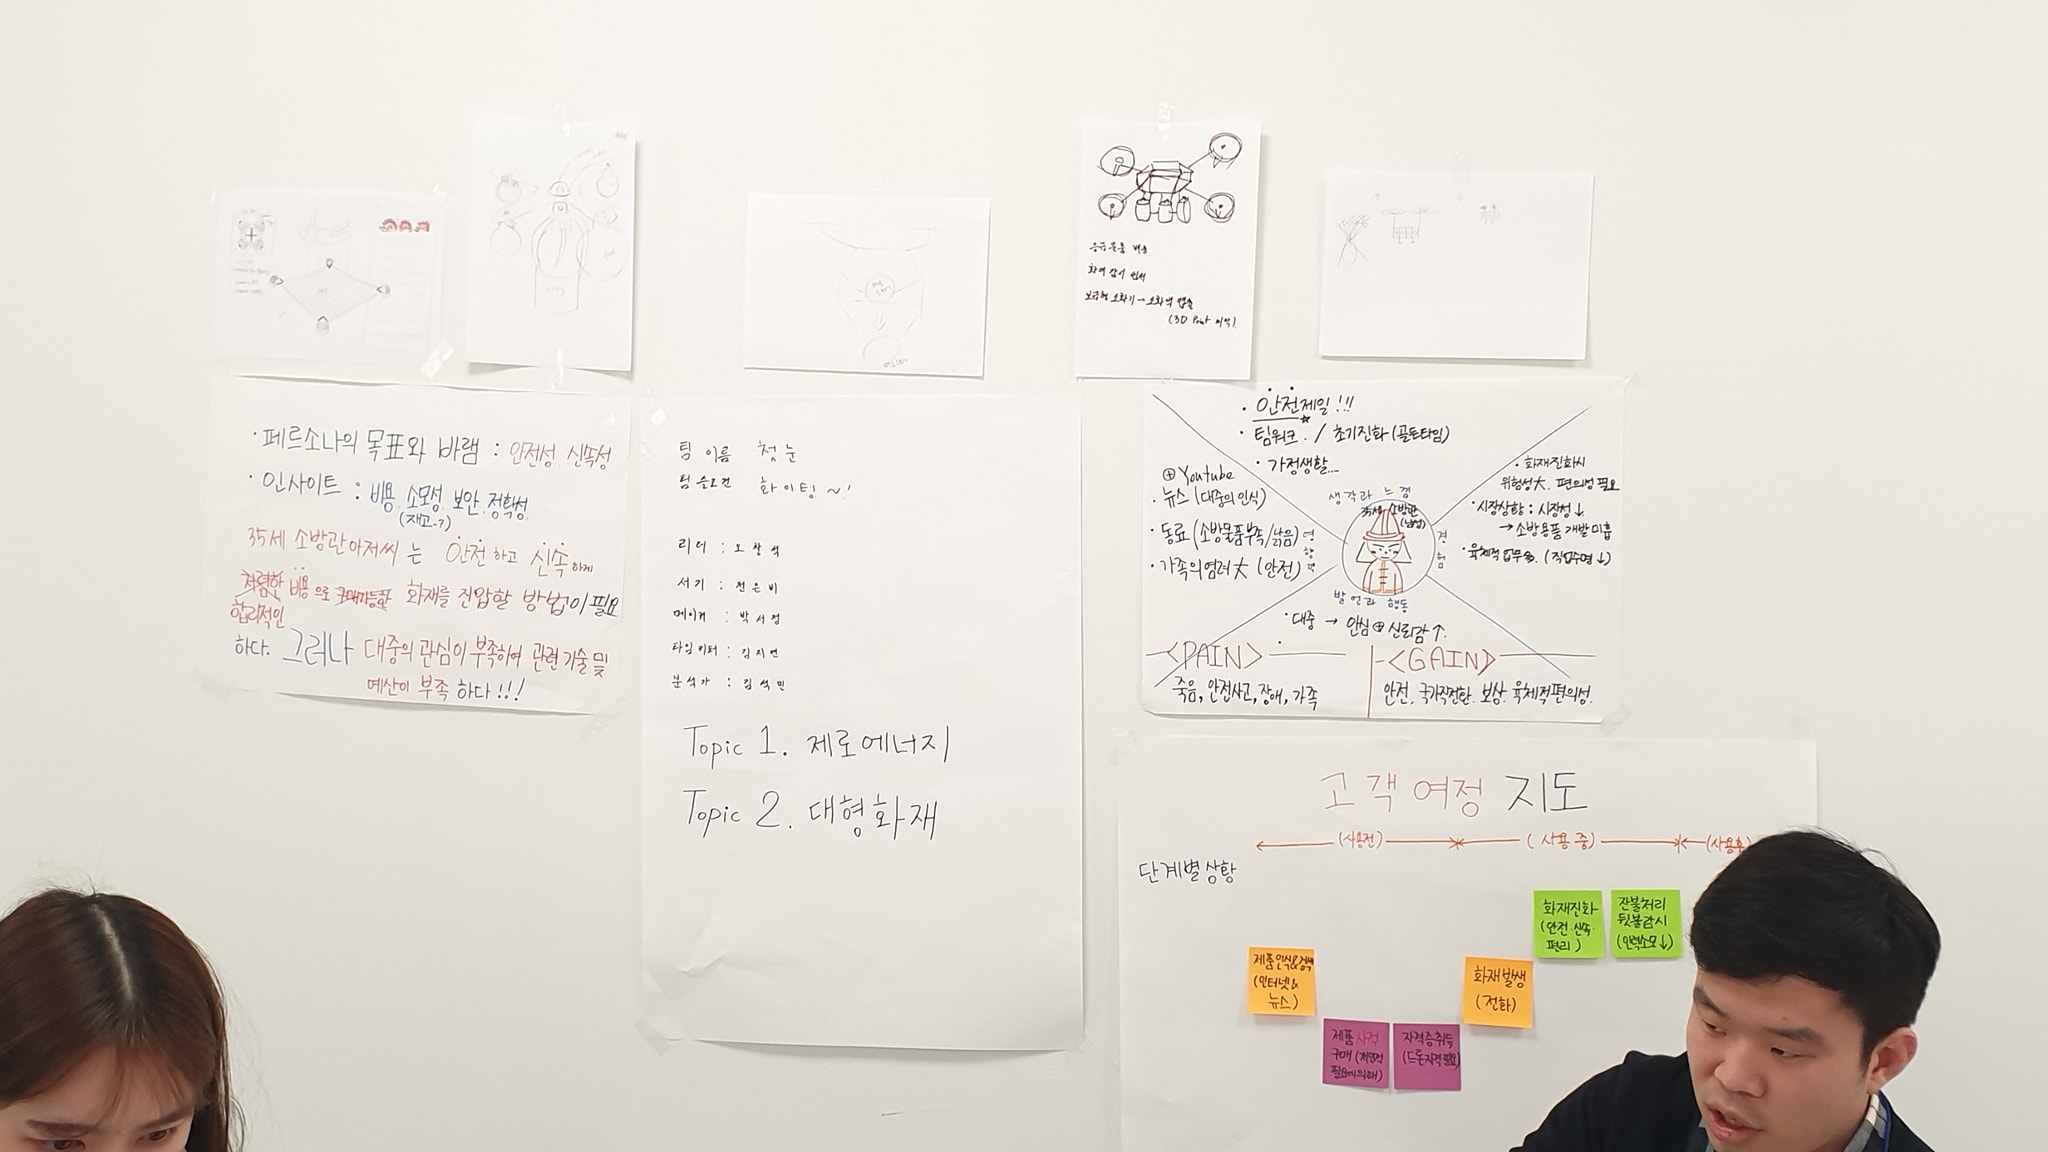 응급물품 배송
보급형 소화기→소화액 캡슐
(3D Print 제작)
· 페르소나의 목표와 바램 : 안전성. 신속성
· 인사이트 : 비용. 소모성. 보안. 정확성.
(재고-?)
35세 소방관아저씨 는 안전하고 신속하게
저렴한 비용으로 화재를 진압할 방법이 필요
합리적인
하다. 그러나 대중의 관심이 부족하여 관련 기술 및
예산이 부족 하다!!!
팀 이름 첫눈
팀 슬로건 화이팅~!
리더 : 오창석
서기 : 전은비
메이커 : 박서정
타임키퍼 : 김지연
분석가 : 김석민
Topic 1. 제로에너지
Topic 2. 대형화재
· 안전제일!!!
· 팀워크. / 초기진화(골든타임)
· 가정생활...
생각과 느낌
35세 소방관
(남성)
⊕Youtube
· 뉴스 (대중의 인식)
· 동료(소방물품부족/낡음)
· 가족의 염려 大 (안전)
영향력
· 화재진화시
위험성大. 편의성 필요
· 시장상황 : 시장성↓
→ 소방용품 개발 미흡
· 육체적 업무多. (직업수명↓)
경험
발언과 행동
· 대중 → 안심 ⊕ 신뢰감↑.
<PAIN>
죽음, 안전사고, 장애, 가족
<GAIN>
안전. 국가직전환. 보상. 육체적편의성.
고객 여정 지도
(사용전) (사용 중) (사용후)
단계별 상황
제품인식&검색
(인터넷&
뉴스)
제품 사적
구매 (개인적
필요에 의해)
자격증취득
(드론자격 필요)
화재 발생
(전화)
화재진화
(안전·신속·
편리)
잔불처리
뒷불감시
(인력소모↓)